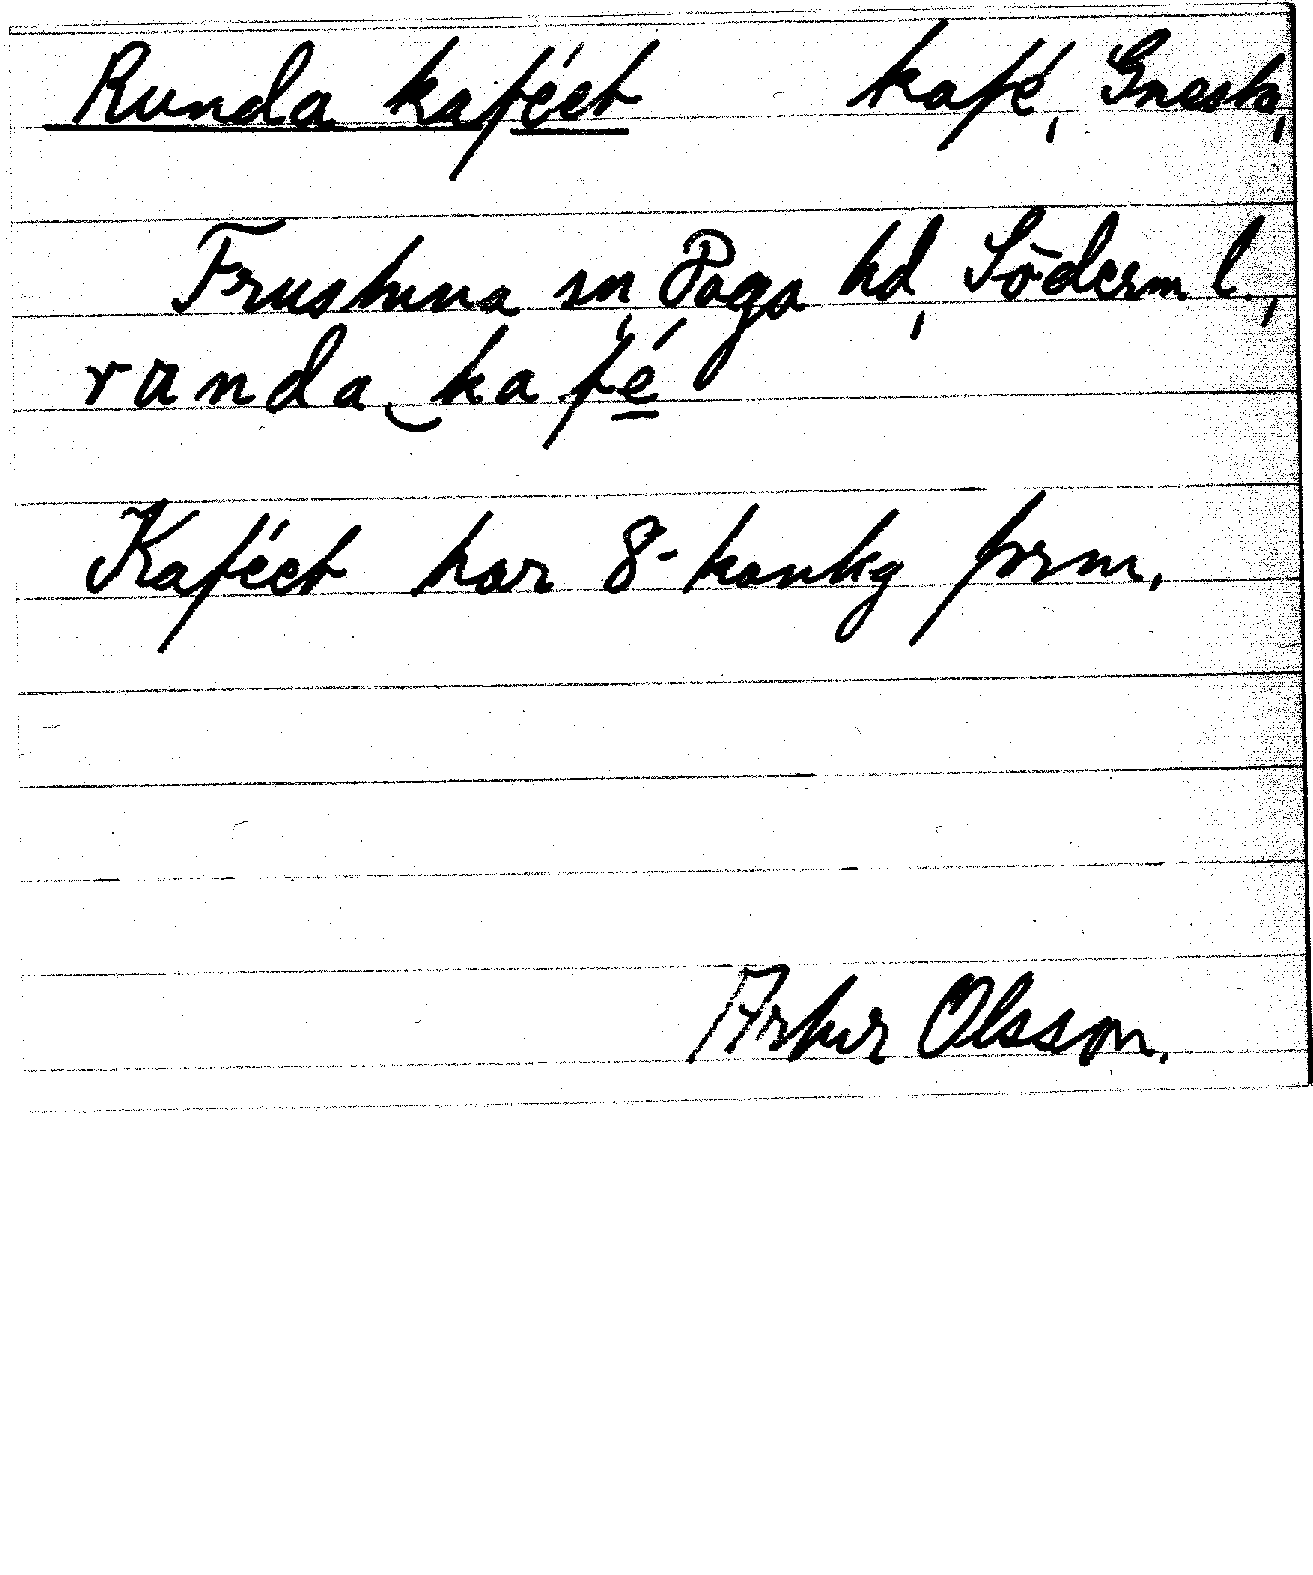 Runda kaféet kafé, Gnesta,
Frustuna sn, Daga hd, Söderm l.,
randa kafé
Kaféet har 8-kantig form.
Artur Olsson.